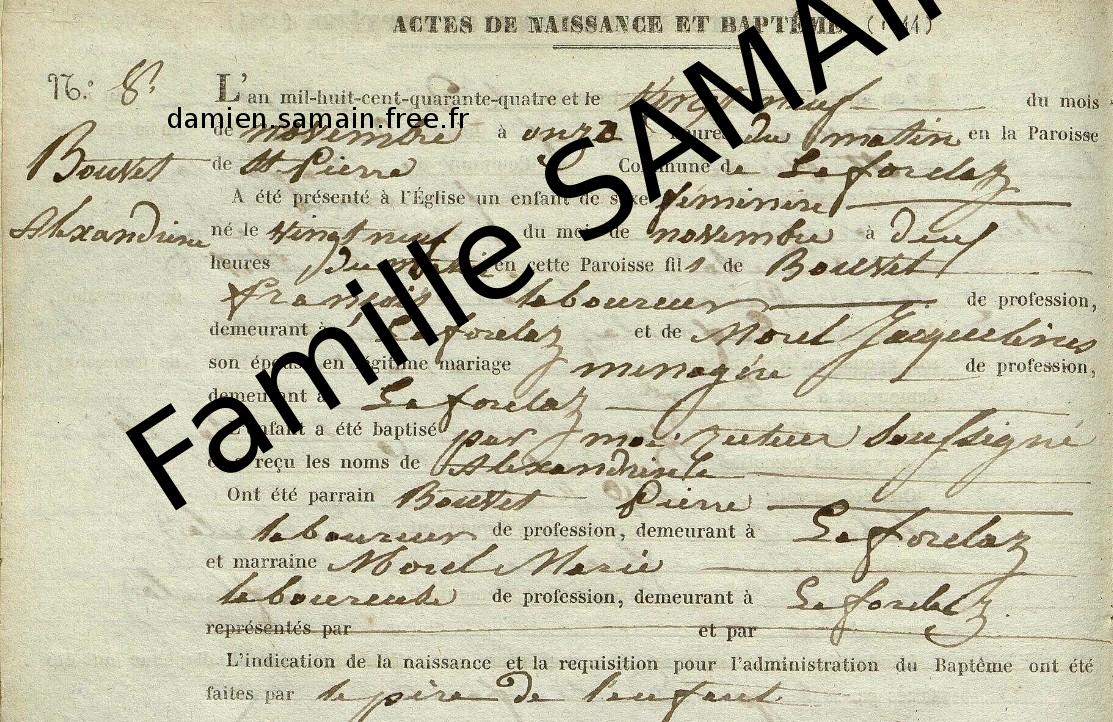 ACTES DE NAISSANCE ET BAPTÊME (1844)
N.° 8.
L'an mil-huit-cent-quarante-quatre et le vingt neuf du mois
damien.samain.free.fr
de novembre à onze heures du matin en la Paroisse
Bouvet
de St Pierre Commune de
A été présenté à l'Église un enfant de sexe féminin
Alexandrine
né le vingt neuf du mois de novembre à deux
heures du matin en cette Paroisse fils de Bouvet
françois laboureur de profession,
demeurant à et de Morel Jacqueline
son épouse en légitime mariage menagére de profession,
demeurant à
L'enfant a été baptisé par moi recteur soussigné
et a reçu les noms de Alexandrine
Ont été parrain Bouvet Pierre
laboureur de profession, demeurant à
et marraine Morel Marie
laboureuse de profession, demeurant à
représentés par et par
L'indication de la naissance et la requisition pour l'administration du Baptême ont été
faites par le père de l'enfant
Famille SAMAIN